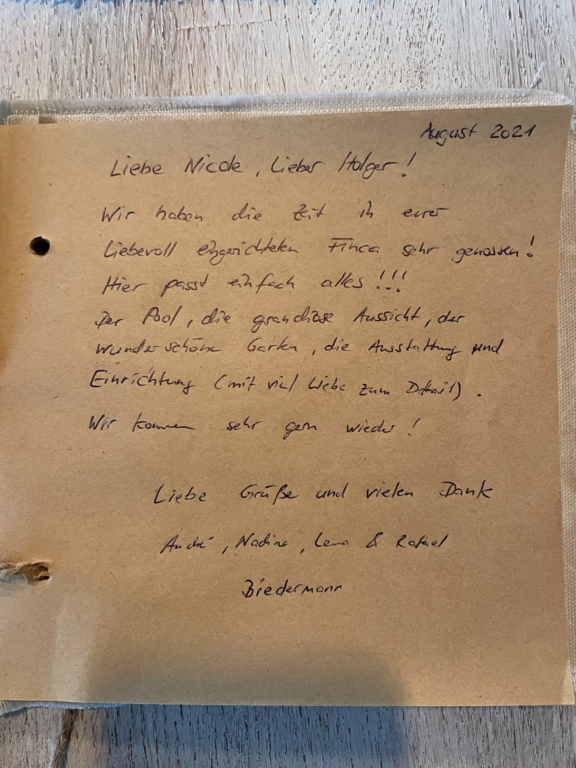 August 2021
Liebe Nicole, Lieber Holger!
Wir haben die Zeit in eurer
Liebevoll eingerichteten Finca sehr genossen!
Hier passt einfach alles!!!
Der Pool, die grandiose Aussicht, der
wunderschöne Garten, die Ausstattung und
Einrichtung (mit viel Liebe zum Detail).
Wir kommen sehr gern wieder!
Liebe Grüße und vielen Dank
André, Nadine, Lena & Rafael
Biedermann